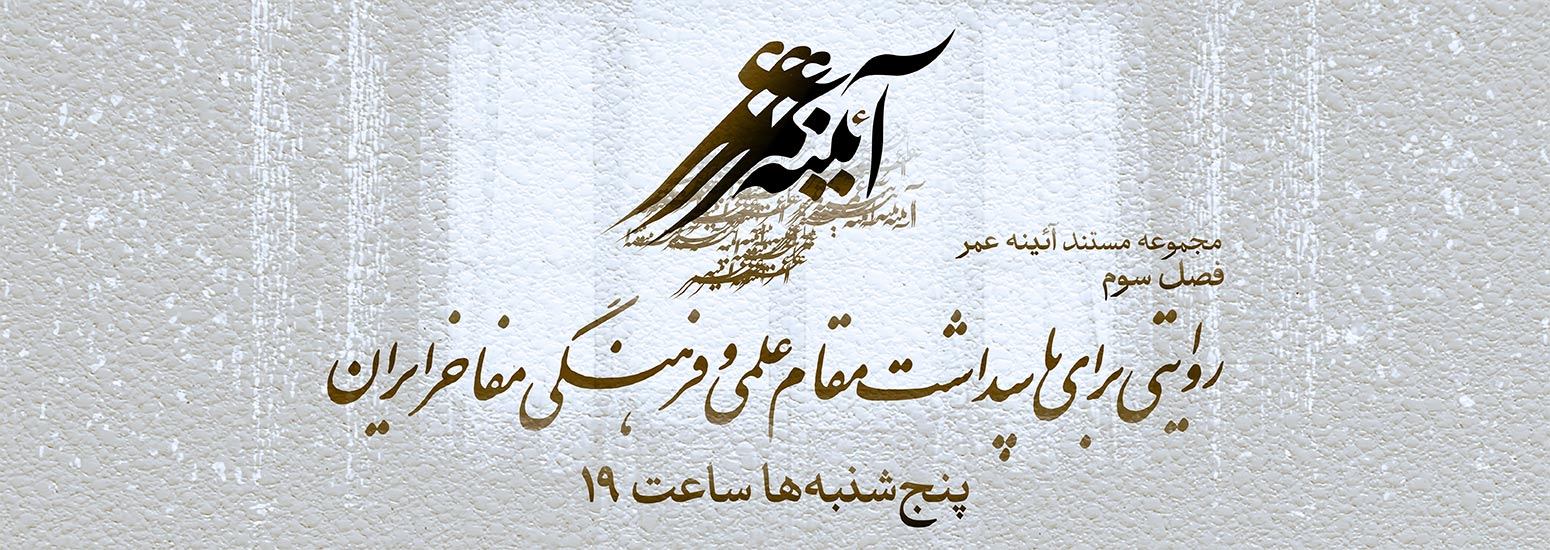 آئینه عمر
مجموعه مستند آئینه عمر
فصل سوم
روایتی برای پاسداشت مقام علمی و فرهنگی مفاخر ایران
پنج‌شنبه‌ها ساعت ۱۹